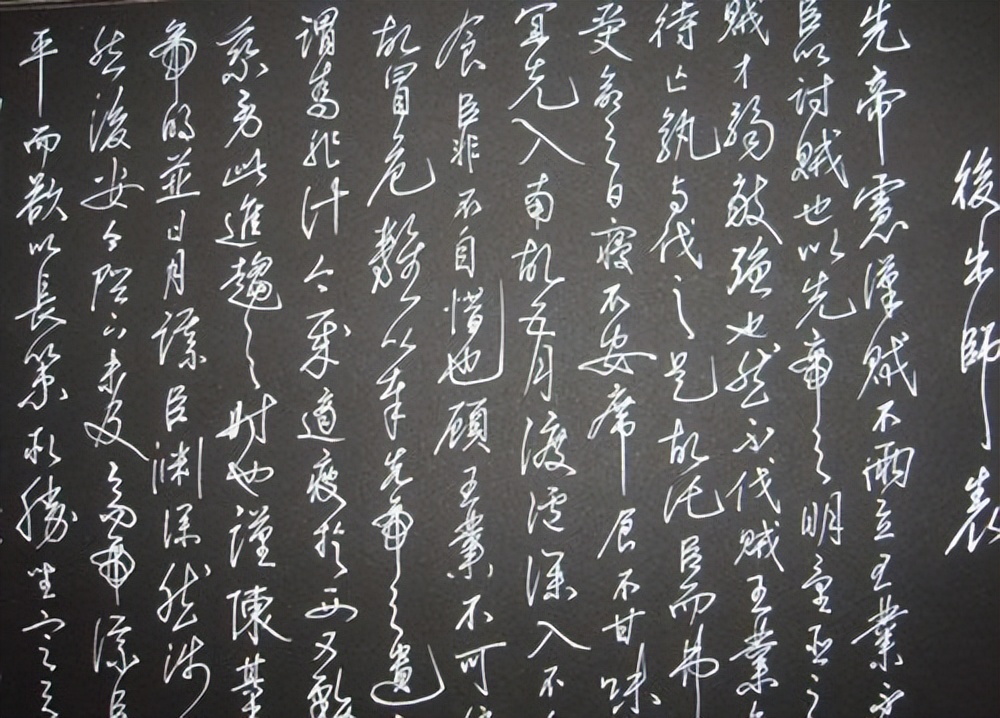 後出師表
先帝慮漢賊不兩立王業不
臣以討賊也以先帝之明量臣之
賊才弱敵強也然不伐賊王業亦
待亡孰与伐之是故託臣而弗
受命之日寢不安席食不甘味
宜先入南故五月渡瀘深入不
食臣非不自惜也顧王業不可
故冒危難以奉先帝之遺
謂為非計今賊適疲於西又務
乘勞此進趨之時也謹陳其
帝明並日月謀臣淵深然涉
然後安今陛下未及高帝謀臣
平而欲以長策取勝坐定